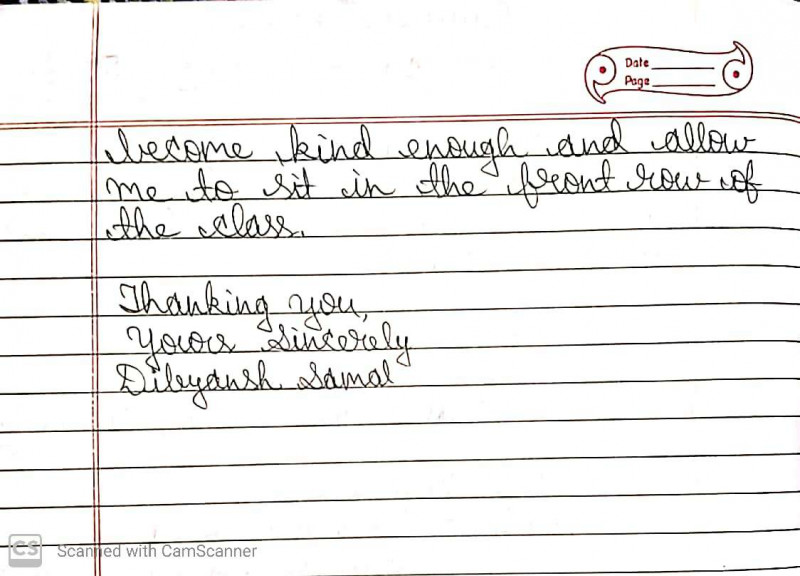 Date
Page
become kind enough and allow
me to sit in the front row of
the class.
Thanking you,
Yours Sincerely
Dibyansh Samal
CS Scanned with CamScanner